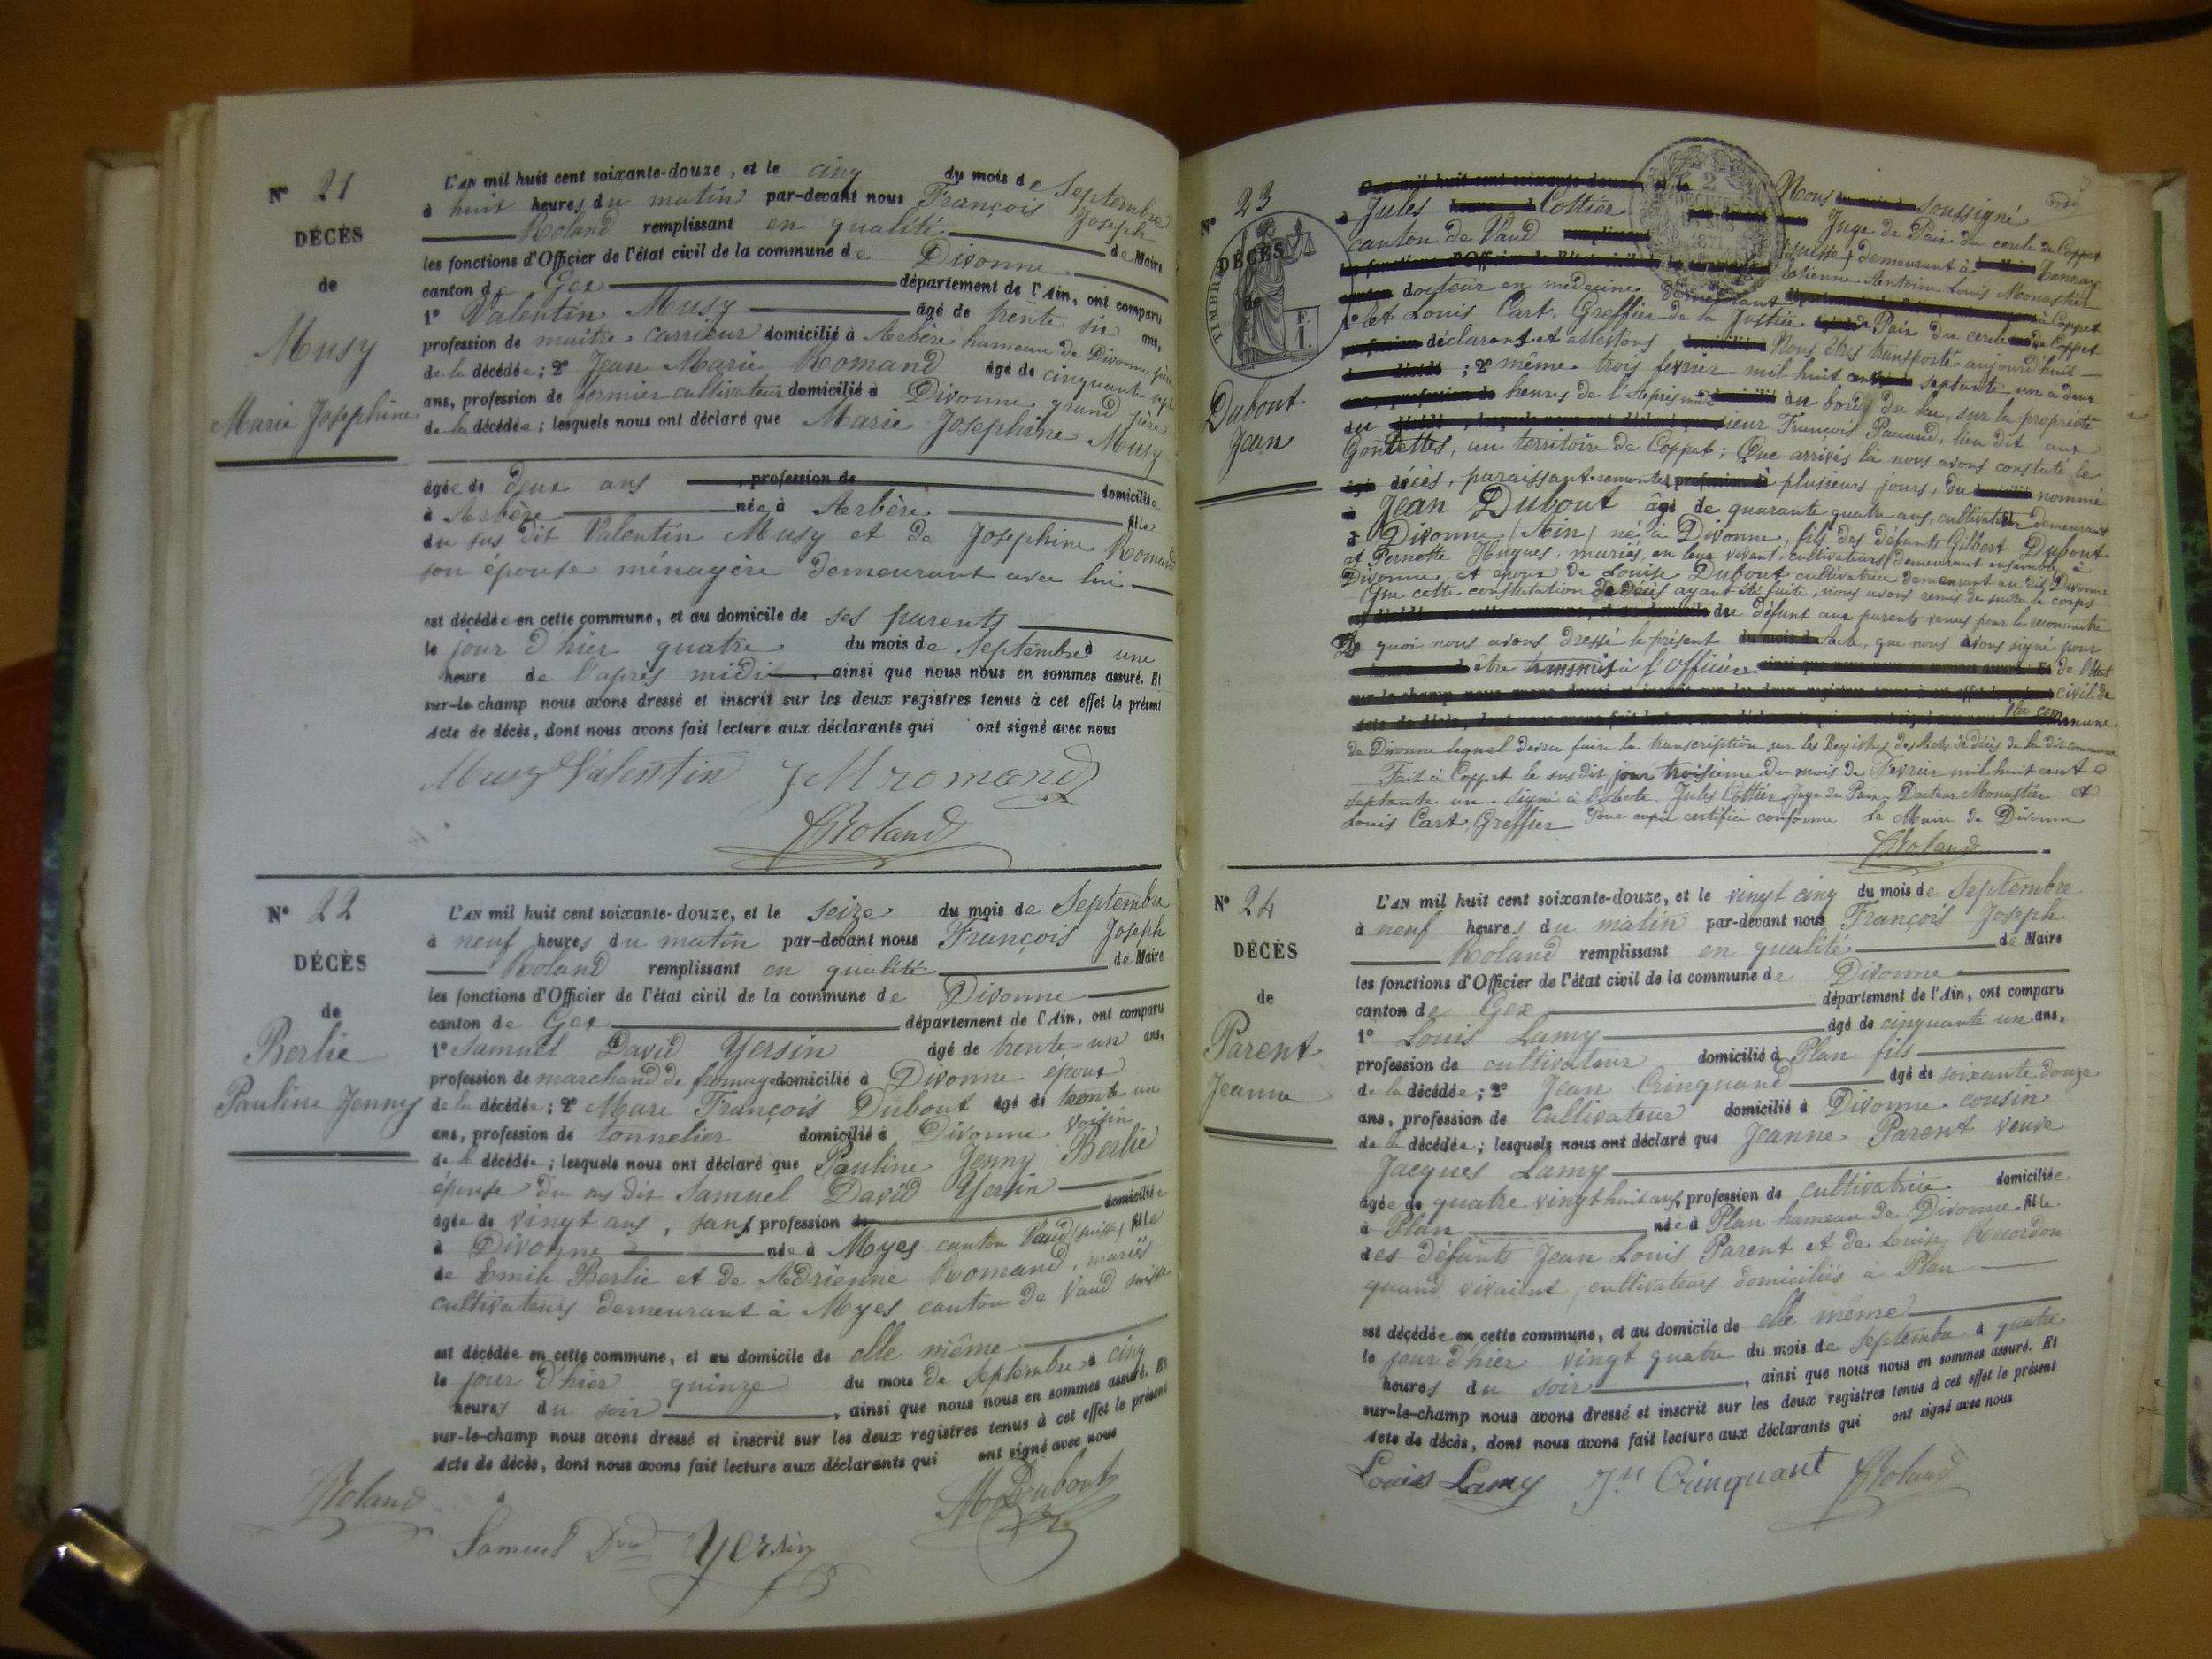 N° 21
DÉCÈS
de
Musy
Marie Josephine
L'AN mil huit cent soixante-douze, et le cinq du mois de Septembre
à huit heures du matin par-devant nous François Joseph
Roland remplissant en qualité de Maire
les fonctions d'Officier de l'état civil de la commune de Divonne
canton de Gex département de l'Ain, ont comparu
1° Valentin Musy âgé de trente six ans,
profession de maître carrieur domicilié à Arbère hameau de Divonne père
de la décédée; 2° Jean Marie Romand âgé de cinquante sept
ans, profession de fermier cultivateur domicilié à Divonne grand père
de la décédée; lesquels nous ont déclaré que Marie Josephine Musy
âgée de deux ans profession de domiciliée
à Arbère née à Arbère fille
du sus dit Valentin Musy et de Josephine Romand
son épouse ménagère demeurant avec lui
est décédée en cette commune, et au domicile de ses parents
le jour d'hier quatre du mois de Septembre à une
heure de l'après midi, ainsi que nous nous en sommes assuré. Et
sur-le-champ nous avons dressé et inscrit sur les deux registres tenus à cet effet le présent
Acte de décès, dont nous avons fait lecture aux déclarants qui ont signé avec nous
Musy Valentin JMromand
Roland
N° 22
DÉCÈS
de
Berlie
Pauline Jenny
L'AN mil huit cent soixante-douze, et le seize du mois de Septembre
à neuf heures du matin par-devant nous François Joseph
Roland remplissant en qualité de Maire
les fonctions d'Officier de l'état civil de la commune de Divonne
canton de Gex département de l'Ain, ont comparu
1° Samuel David Yersin âgé de trente un ans,
profession de marchand de fromage domicilié à Divonne époux
de la décédée; 2° Marc François Dubout âgé de trente un
ans, profession de tonnelier domicilié à Divonne voisin
de la décédée; lesquels nous ont déclaré que Pauline Jenny Berlie
épouse du sus dit Samuel David Yersin
âgée de vingt ans, sans profession de domiciliée
à Divonne née à Myes canton Vaud (suisse) fille
de Emile Berlie et de Adrienne Romand, mariés
cultivateurs demeurant à Myes canton de Vaud suisse
est décédée en cette commune, et au domicile de elle même
le jour d'hier quinze du mois de Septembre à cinq
heures du soir, ainsi que nous nous en sommes assuré. Et
sur-le-champ nous avons dressé et inscrit sur les deux registres tenus à cet effet le présent
Acte de décès, dont nous avons fait lecture aux déclarants qui ont signé avec nous
Roland Dubout
Samuel Dvd Yersin
N° 23
DÉCÈS
de
Dubout
Jean
Nous soussigné
Jules Cottier Juge de Paix du cercle de Coppet
canton de Vaud suisse, demeurant à Tannay
Etienne Antoine Louis Monastier
docteur en médecine demeurant à Coppet
et Louis Cart, Greffier de la Justice de Paix du cercle de Coppet
déclarons et attestons Nous être transporté aujourd'huit
même trois fevrier mil huit cent septante un à deux
heures de l'après midi au bord du lac, sur la propriété
du sieur François Pavaud, lieu dit aux
Gouttettes, au territoire de Coppet; Que arrivés là nous avons constaté le
décès, paraissant remonter à plusieurs jours, du nommé
Jean Dubout âgé de quarante quatre ans, cultivateur demeurant
à Divonne (Ain) né à Divonne, fils des défunts Gilbert Dubout
et Pernette Hugues, mariés, en leur vivant, cultivateurs demeurant ensemble, à
Divonne, et époux de Louise Dubout cultivatrice demeurant au dit Divonne
Que cette constatation de décès ayant été faite, nous avons remis de suite le corps
du défunt aux parents venus pour le reconnaitre
De quoi nous avons dressé le présent acte, que nous avons signé pour
être transmis à l'officier de l'état
civil de
la commune
de Divonne lequel devra faire la transcription sur les Registres des actes de décès de la dite commune
Fait à Coppet le sus dit jour troisième du mois de Fevrier mil huit cent
septante un. signé à l'acte Jules Cottier Juge de Paix, Docteur Monastier et
Louis Cart, Greffier Pour copie certifiée conforme Le Maire de Divonne
Roland
N° 24
DÉCÈS
de
Parent
Jeanne
L'AN mil huit cent soixante-douze, et le vingt cinq du mois de Septembre
à neuf heures du matin par-devant nous François Joseph
Roland remplissant en qualité de Maire
les fonctions d'Officier de l'état civil de la commune de Divonne
canton de Gex département de l'Ain, ont comparu
1° Louis Lamy âgé de cinquante un ans,
profession de cultivateur domicilié à Plan fils
de la décédée; 2° Jean Crinquand âgé de soixante douze
ans, profession de Cultivateur domicilié à Divonne cousin
de la décédée; lesquels nous ont déclaré que Jeanne Parent veuve
Jacques Lamy
âgée de quatre vingt huit ans, profession de cultivatrice domiciliée
à Plan née à Plan hameau de Divonne fille
des défunts Jean Louis Parent et de Louise Ruordon
quand vivaient, cultivateurs domiciliés à Plan
est décédée en cette commune, et au domicile de elle même
le jour d'hier vingt quatre du mois de Septembre à quatre
heures du soir, ainsi que nous nous en sommes assuré. Et
sur-le-champ nous avons dressé et inscrit sur les deux registres tenus à cet effet le présent
Acte de décès, dont nous avons fait lecture aux déclarants qui ont signé avec nous
Louis Lamy Jn Crinquant Roland